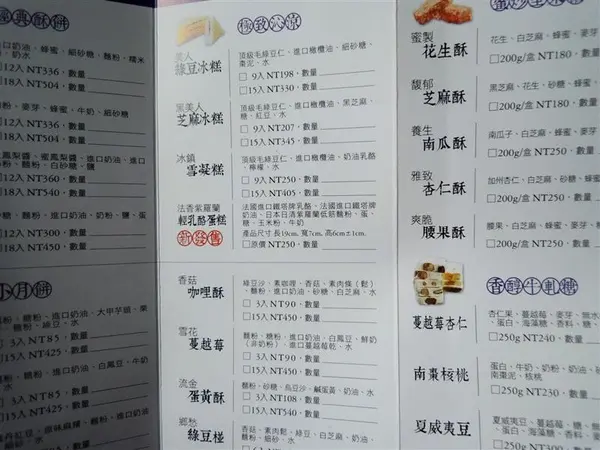 經典酥餅
進口奶油、蜂蜜、細砂糖、麵粉、糯米
、水
12入 NT336，數量
18入 NT504，數量
粉、麥芽、蜂蜜、牛奶、細砂糖
12入 NT336，數量
18入 NT504，數量
12入 NT360，數量
18入 NT540，數量
、糖、麵粉、進口奶油、奶粉、鹽、蛋
12入 NT300，數量
18入 NT450，數量
小月餅
3入 NT85，數量
15入 NT425，數量
3入 NT85，數量
15入 NT425，數量
極致沁涼
美人
綠豆冰糕
頂級毛綠豆仁、進口橄欖油、細砂糖、
棗泥、水
□ 9入 NT198，數量
□15入 NT330，數量
黑美人
芝麻冰糕
頂級毛綠豆仁、進口橄欖油、黑芝麻、
糖、紅豆、水
□ 9入 NT207，數量
□15入 NT345，數量
冰鎮
雪凝糕
頂級毛綠豆仁、進口橄欖油、奶油乳酪
、檸檬、水
□ 9入 NT250，數量
□15入 NT405，數量
法香紫羅蘭
輕乳酪蛋糕
新發售
法國進口鐵塔牌乳酪、法國進口鐵塔牌
奶油、日本日清紫羅蘭低筋麵粉、蛋、
糖、玉米粉、牛奶
產品尺寸 長19cm, 寬7cm, 高6cm±1cm.
□原價 NT250，數量
香菇
咖哩酥
綠豆沙、素咖哩、香菇、素肉條(鬆)
、麵粉、進口奶油、砂糖、白芝麻、水
□ 3入 NT90，數量
□15入 NT450，數量
雪花
蔓越莓
麵粉、糖粉、進口奶油、白鳳豆、鮮奶
(非奶粉)、進口蔓越莓乾、水
□ 3入 NT90，數量
□15入 NT450，數量
流金
蛋黃酥
麵粉、砂糖、烏豆沙、鹹蛋黃、奶油、水
□ 3入 NT108，數量
□15入 NT540，數量
鄉愁
綠豆椪
香菇、素肉鬆、綠豆、白芝麻、奶油、
蜜製
花生酥
花生、白芝麻、蜂蜜、麥
□200g/盒 NT180，數
馥郁
芝麻酥
黑芝麻、花生、砂糖、蜂
□200g/盒 NT180，數
養生
南瓜酥
南瓜子、白芝麻、蜂蜜、麥
□200g/盒 NT250，數
雅致
杏仁酥
加州杏仁、白芝麻、砂糖、蜂
□200g/盒 NT250，數
爽脆
腰果酥
腰果、白芝麻、蜂蜜、麥芽
□200g/盒 NT250，數
香醇牛軋糖
蔓越莓杏仁
杏仁果、蔓越莓、麥芽、糖、
、蛋白、海藻糖、香料、糖
□250g NT240，數
南棗核桃
蛋白、牛奶、奶粉、奶油、砂
南棗泥、核桃
□250g NT230，數
夏威夷豆
夏威夷豆、蔓越莓、糖、無
、蛋白、海藻糖、香料
□250g NT300，數